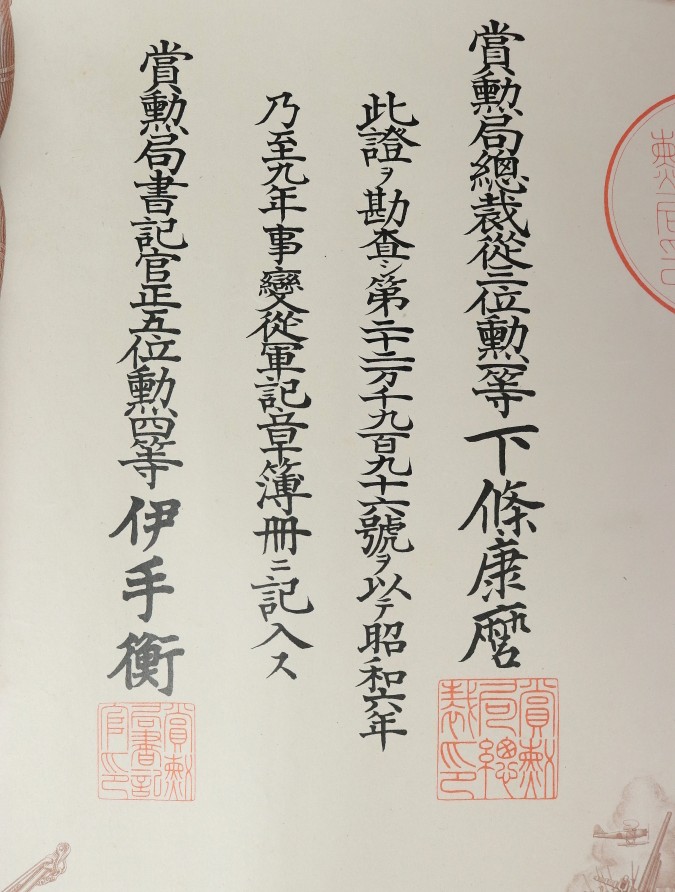 賞勲局總裁從三位勲一等下條康麿
此證ヲ勘査シ第二十二万千九百九十六號ヲ以テ昭和六年
乃至九年事變從軍記章簿冊ニ記入ス
賞勲局書記官正五位勲四等伊手衡
賞勲局總裁印
賞勲局書記官印